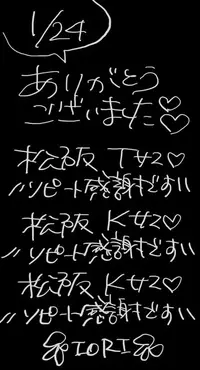 1/24
ありがとう
ございました♡♡
松阪 T様♡
リピート感謝です
松阪 K様♡
リピート感謝です
松阪 K様♡
リピート感謝です
IORI